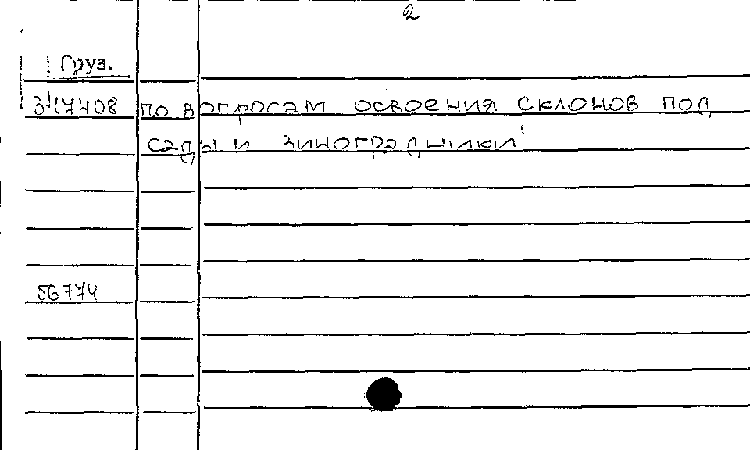 2
Груз.
347408 по вопросам освоения склонов под
сады и виноградники
56774